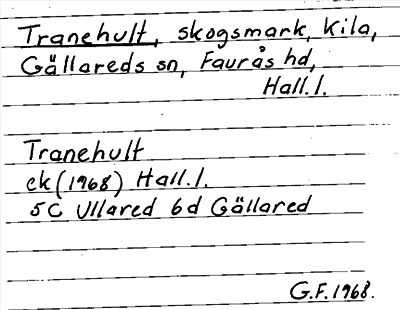 Tranehult, skogsmark, Kila,
Gällareds sn, Faurås hd,
Hall. l.
Tranehult
ek (1968) Hall. l.
5C Ullared 6d Gällared
G.F. 1968.